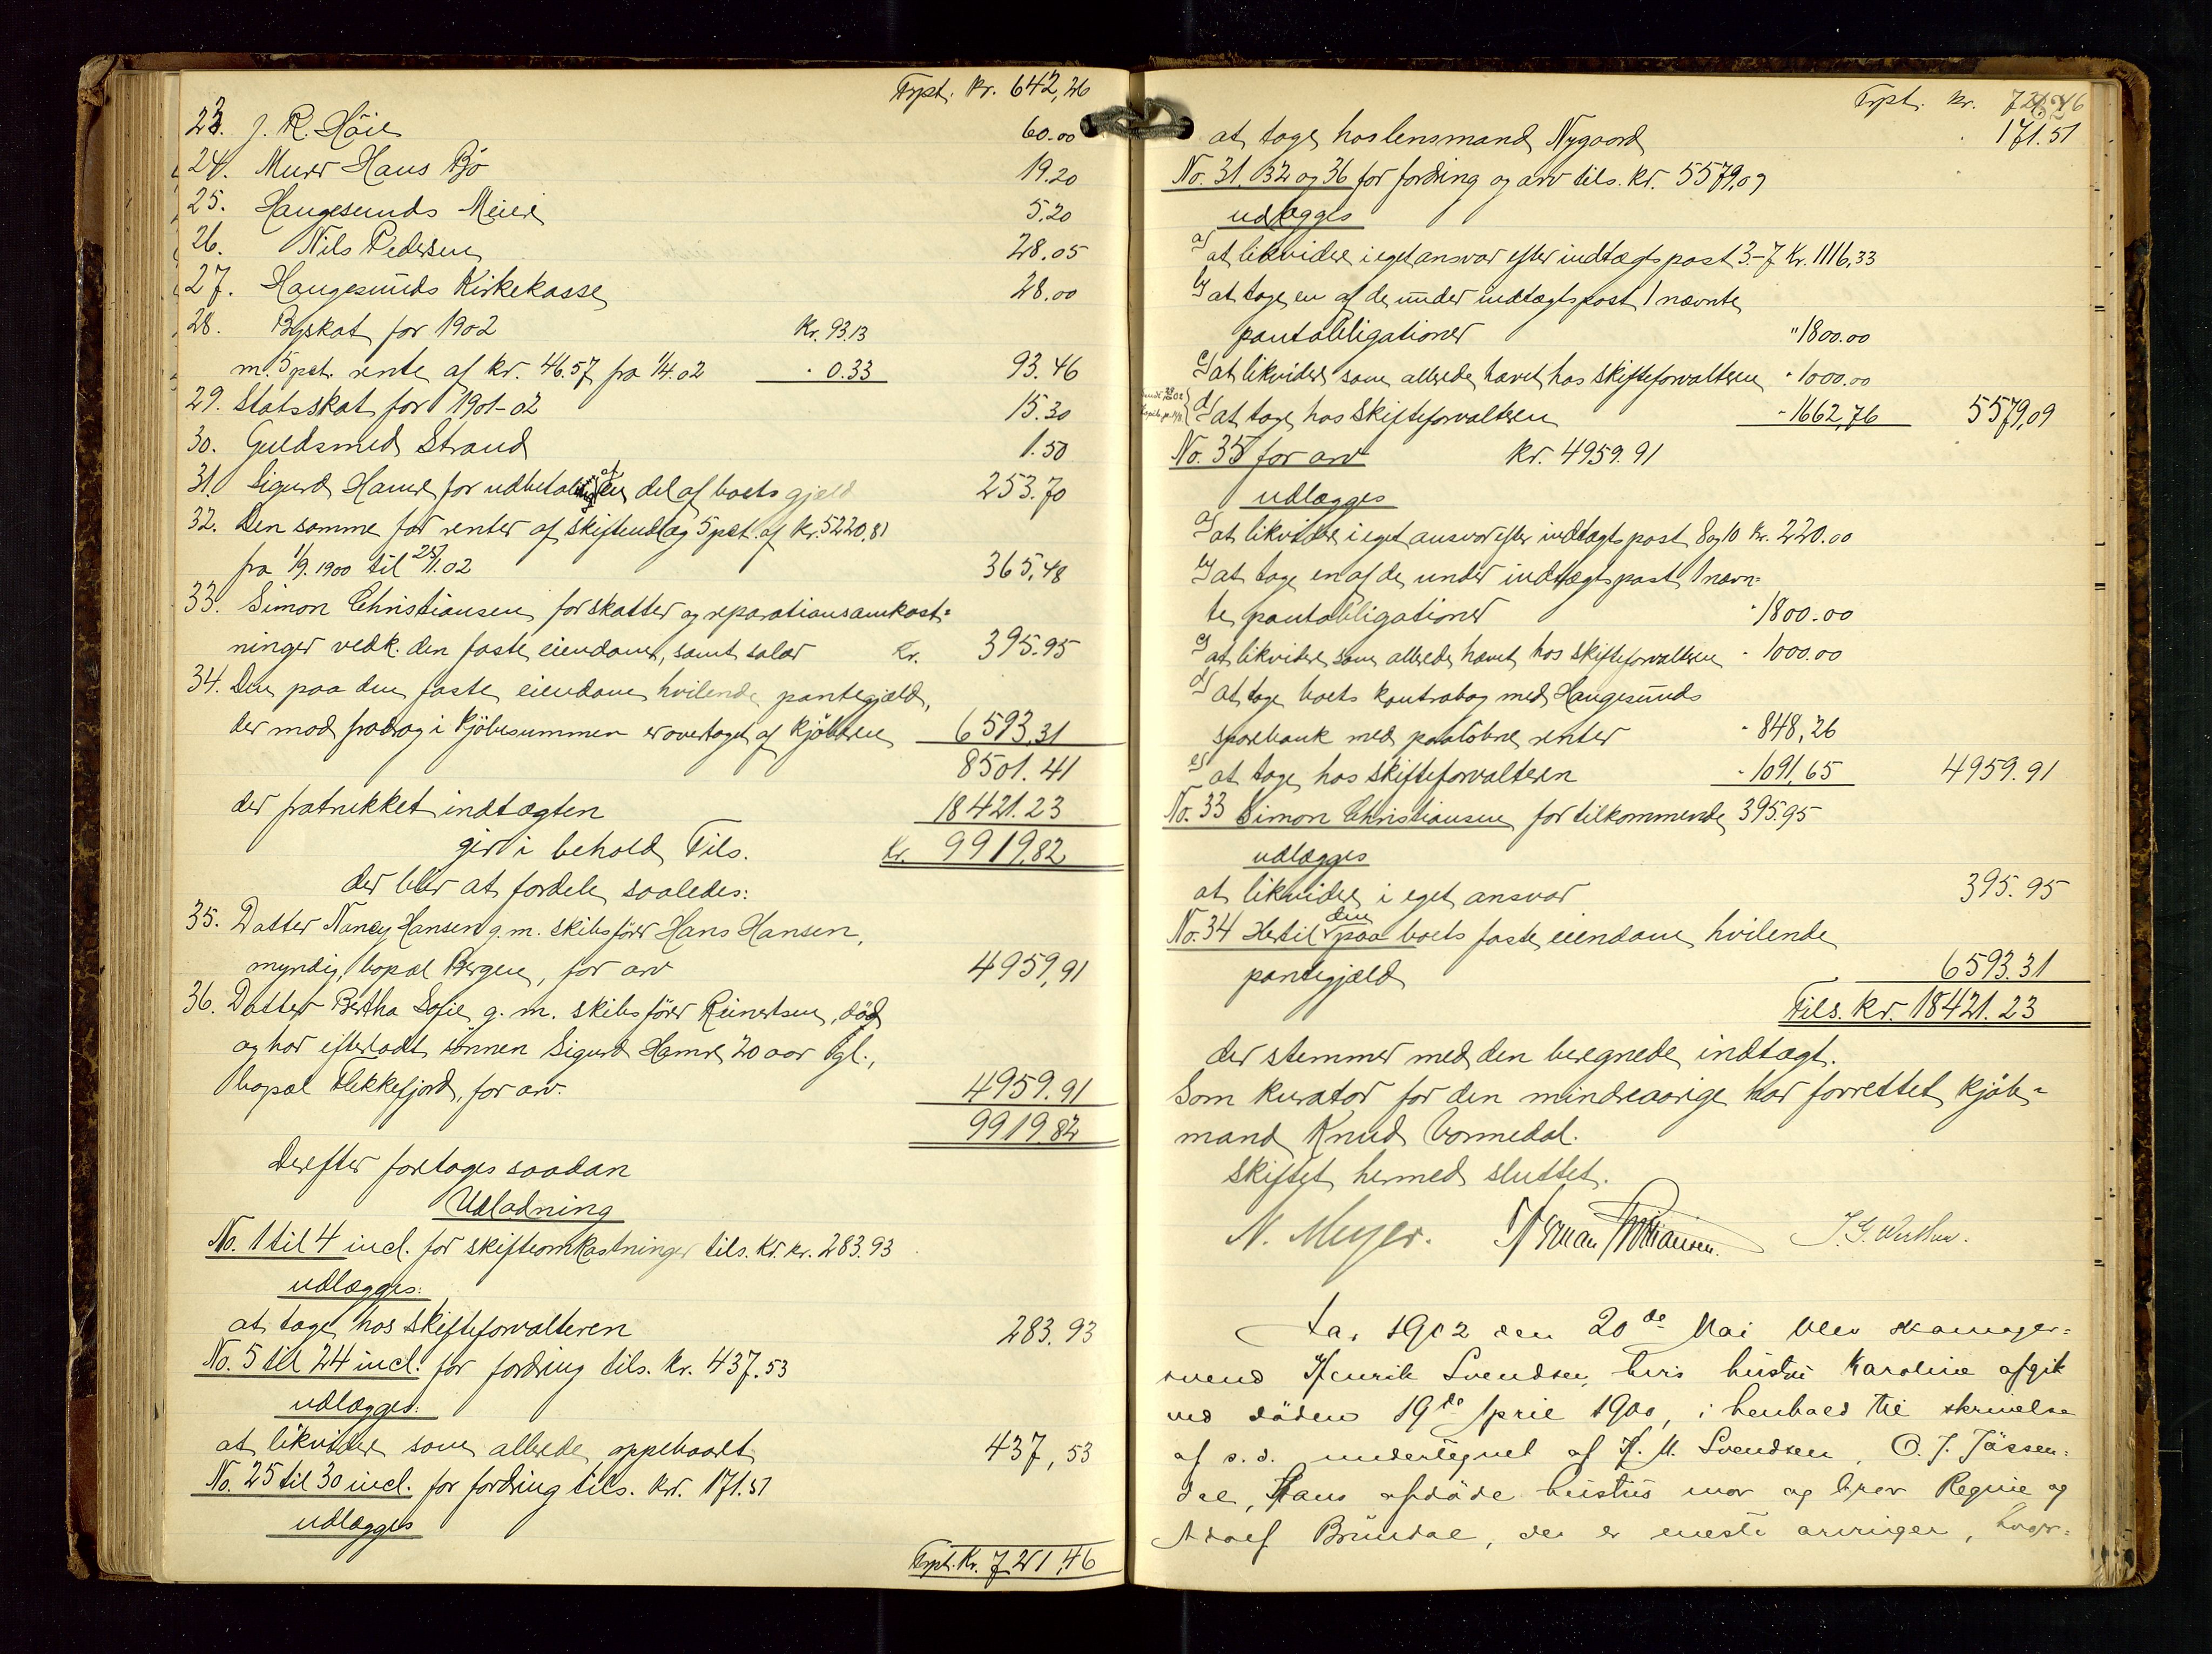 Trpt. Kr. 642,26
23. J. R. Höie 60.00
24. Murer Hans Bö 19.20
25. Haugesunds Meieri 5.20
26. Nils Pedersen 28.05
27. Haugesunds Kirkekasse 28.00
28. Byskat for 1902 Kr. 93.13
m. 5 pct. rente af kr. 46.57 fra 1/4.02 " 0.33 93.46
29. Statsskat for 1901-02 15.30
30. Guldsmed Strand 1.50
31. Sigurd Hamre for udbetaling af en del af boets gjeld 253.70
32. Den samme for renter af skifteudlæg 5 pct. af Kr. 5220,81
fra 1/9. 1900 til 25/1.02 365,48
33. Simon Christiansen for skatter og reparationsomkost=
ninger vedk. den faste eiendom, samt salær Kr. 395.95
34. Den paa den faste eiendom hvilende pantegjæld,
der mod fradrag i kjöbesummen er overtaget af kjöberen 6593,31
8501.41
der fratrukket indtægten 18421.23
gir i behold Tils. Kr. 9919,82
der blir at fordele saaledes:
35. Datter Nancy Hansen g. m. skibsförer Hans Hansen,
myndig, bopæl Bergen, for arv 4959,91
36. Datter Bertha Sofie g. m. skibsförer Reinertsen, död
og har efterladt sönnen Sigurd Hamre 20 aar gl.,
bopæl Flekkefjord, for arv. 4959.91
9919.82
Derefter foretages saadan
Udlodning
No. 1 til 4 incl. for skifteomkostninger tils. Kr. kr. 283.93
udlægges:
at tage hos skifteforvalteren 283.93
No. 5 til 24 incl. for fordring tils. Kr. 437.53
udlægges:
at likvidere som allerede oppebaaret 437,53
No. 25 til 30 incl. for fordring tils. Kr. 171.51
udlægges
Trpt. Kr. 721,46
Trpt. kr. 721,46
at tage hos lensmand Nygaard 171.51
No. 31. 32 og 36 for fordring og arv tils. Kr. 5579,09
udlægges
a) at likvidere i eget ansvar efter indtægtspost 3-7 Kr. 1116,33
b) at tage en af de under indtægtspost 1 nævnte
pantobligationer " 1800.00
c) at likvidere som allerede hævet hos skifteforvalteren " 1000.00
d) at tage hos skifteforvalteren " 1662,76 5579,09
No. 35 for arv Kr. 4959.91
udlægges
a) at likvidere i eget ansvar efter indtægtspost 8 og 10 Kr. 220.00
b) at tage en af de under indtægtspost 1 nævn=
te pantobligationer " 1800.00
c) at likvidere som allerede hævet hos skifteforvalteren " 1000.00
d) at tage boets kontrabog med Haugesunds
sparebank med paalöbne renter " 848,26
e) at tage hos skifteforvalteren " 1091,65 4959.91
No. 33 Simon Christiansen for tilkommende 395.95
udlægges
at likvidere i eget ansvar 395.95
No. 34 Hertil den paa boets faste eiendom hvilende
pantegjæld 6593.31
Tils. Kr. 18421.23
der stemmer med den beregnede indtægt.
Som kurator for den mindreaarige har forrettet kjöb=
mand Knud Vormedal.
Skiftet hermed sluttet.
N. Meyer. Christiansen.
Aar 1902 den 20de Mai blev skomager=
svend Henrik Svendsen, hvis hustru Karoline afgik
ved döden 19de April 1900, i henhold til skrivelse
af s. d. undertegnet af H. M. Svendsen, O. J. Jössen=
dal, Hans afdöde hustrus mor og bror Regine og
Adolf Bründal, der er eneste arvinger,